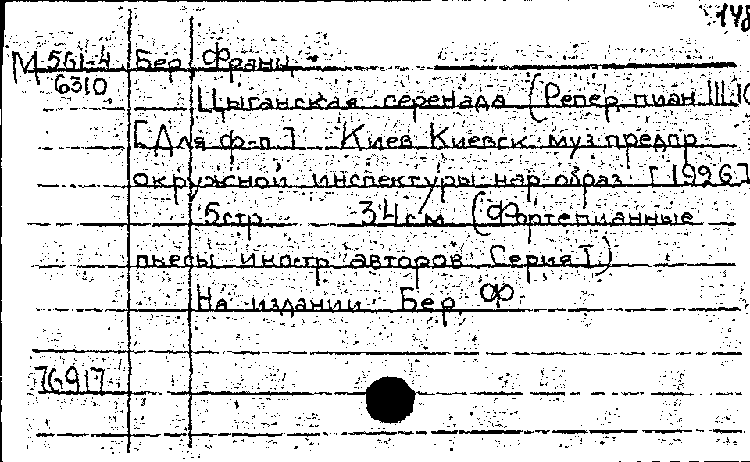 148
М 561-4 Бер, Франц.
6310
Цыганская серенада (Репер. пиан. III.10
[Для ф-п.] Киев Киевск. муз. предпр.
окружной инспектуры нар. образ. [1926]
5 стр. 34 см. (Фортепианные
пьесы иностр. авторов Серия I.)
На издании: Бер, Ф.
76917